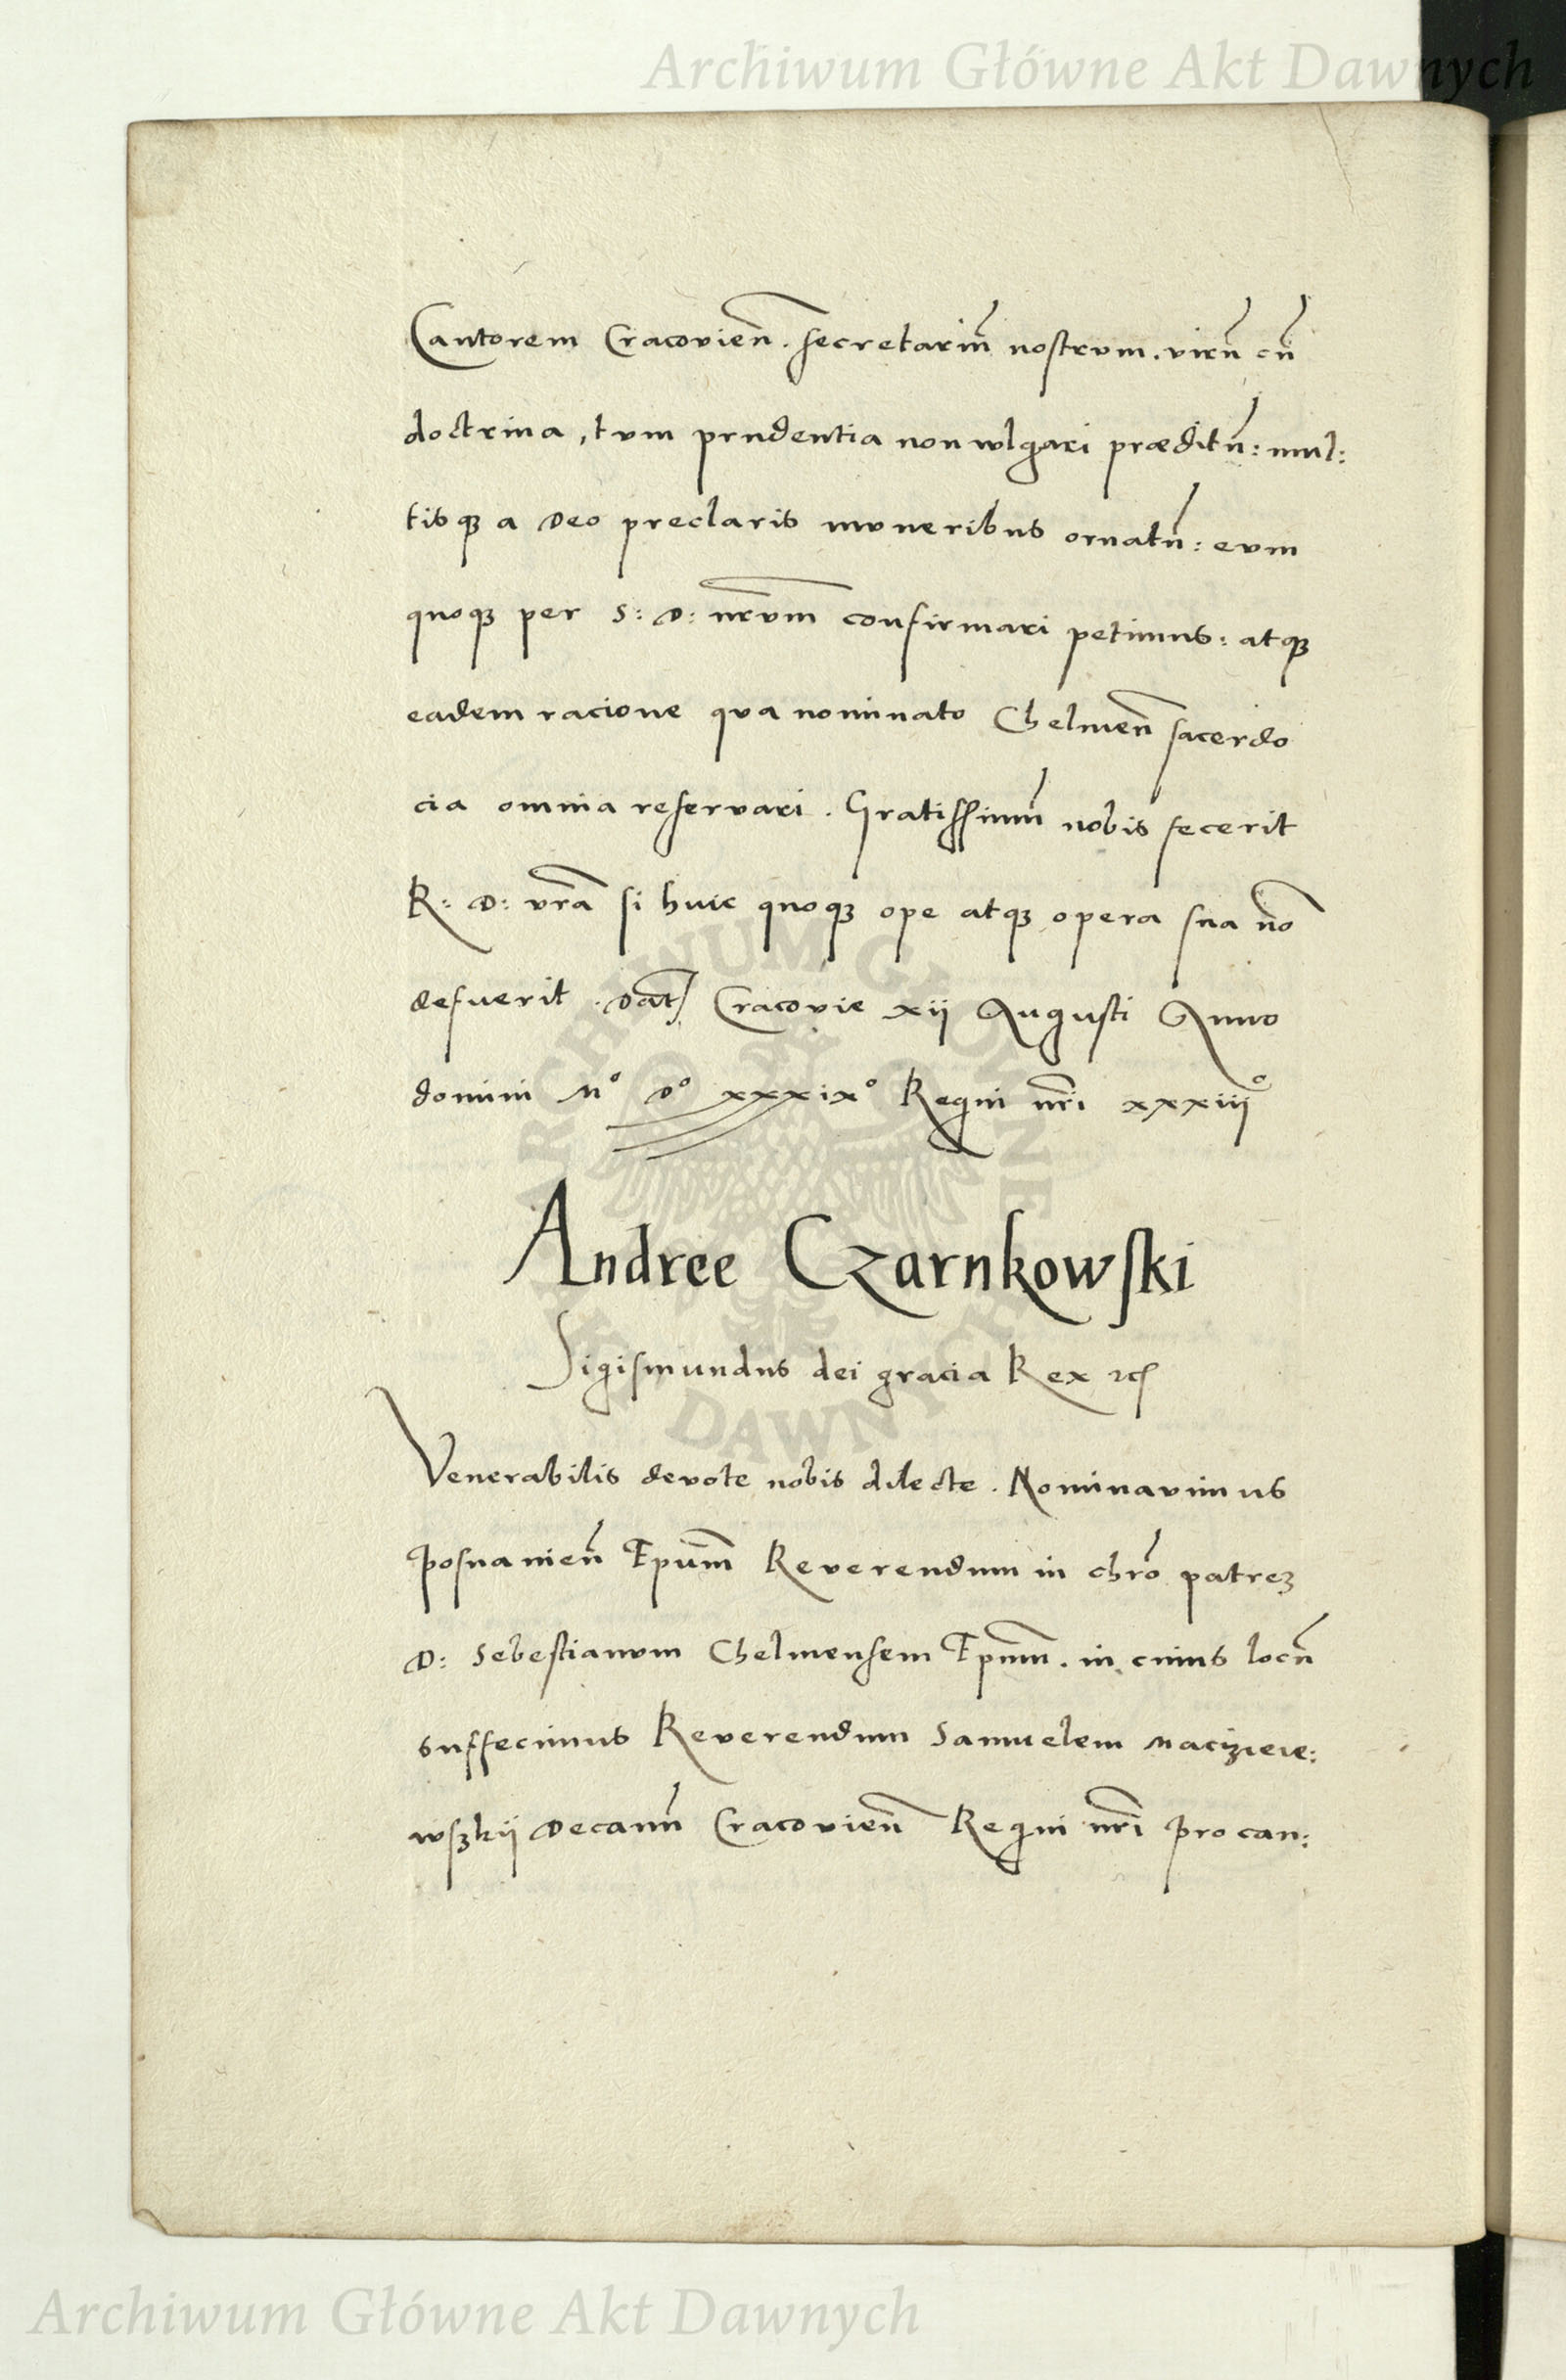 Archiwum Główne Akt Dawnych
Cantorem Cracovień. secretariũ nostrvm. virũ cũ
doctrina, tvm prudentia non wlgari præditũ: mul:
tisqꝫ a Deo preclaris mvneribus ornatũ: evm
quoqꝫ per S: D: nr̃vm confirmari petimus: atqꝫ
eadem racione qva nominato Chelmeñ sacerdo
cia omnia reservari. Gratissimũ nobis fecerit
R: D: vr̃a si hvic quoqꝫ ope atqꝫ opera sua nõ
defuerit. Dat̃ Cracovie xii Augusti Anno
domini Mº Dº xxxixº Regni nr̃i xxxiiiº
Andree Czarnkowski
Sigismundus dei gracia Rex ꝛcꝭ
Venerabilis devote nobis dilecte. Nominavimus
Posnanieñ Ep̃um Reverendum in chr̃o patreꝫ
D: Sebestianvm Chelmensem Ep̃um. in cuius locũ
suffecimus Reverendum Samuelem Macizieie:
wsꝫkij Decanũ Cracovieñ Regni nr̃i Procan:
ARCHIWUM GŁÓWNE
AKT DAWNYCH
Archiwum Główne Akt Dawnych